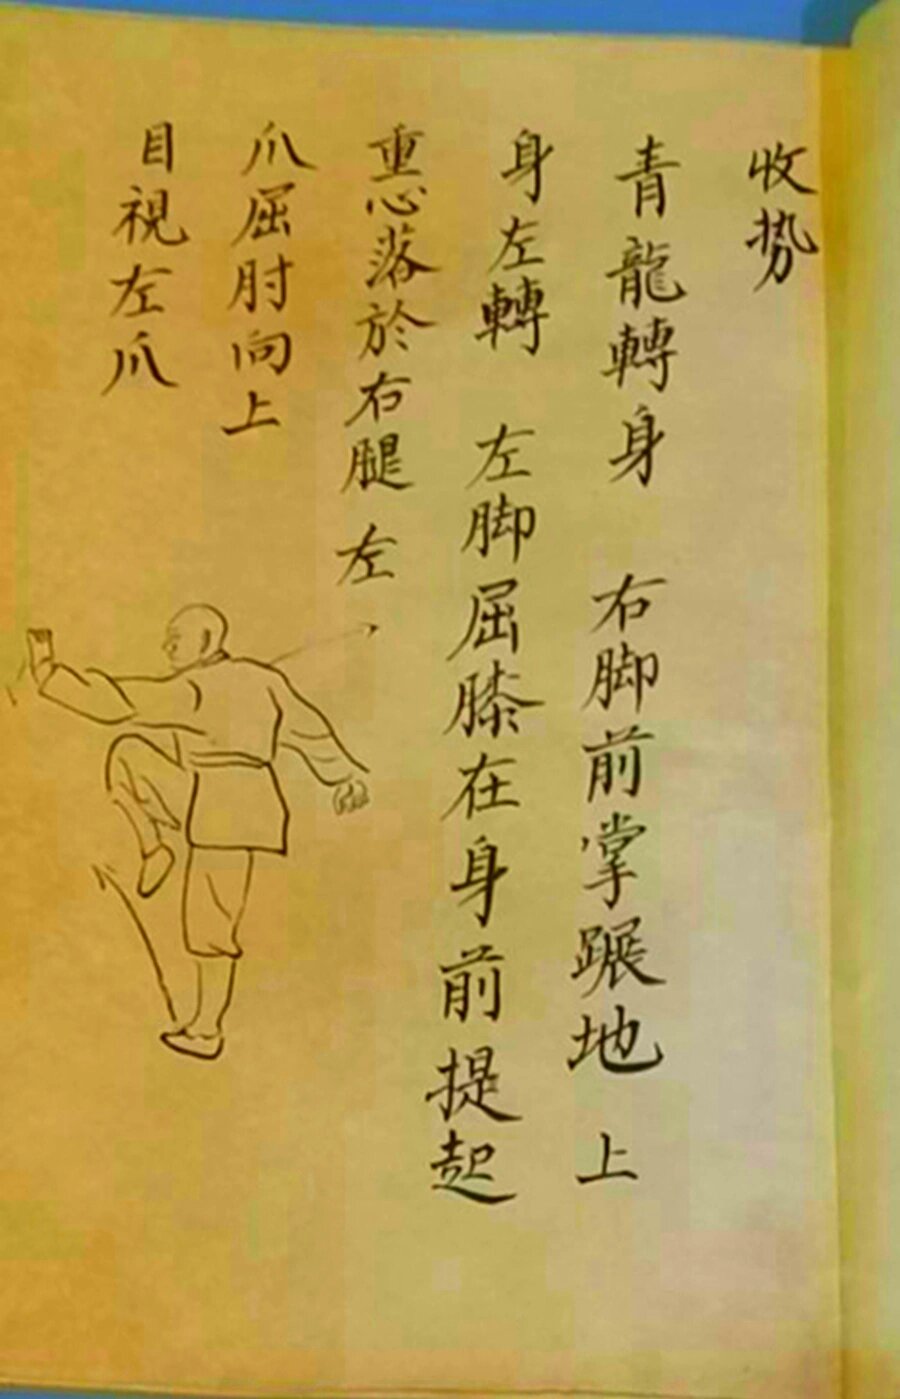 收势
青龍轉身 右脚前掌蹍地 上
身左轉 左脚屈膝在身前提起
重心落於右腿 左
爪屈肘向上
目視左爪